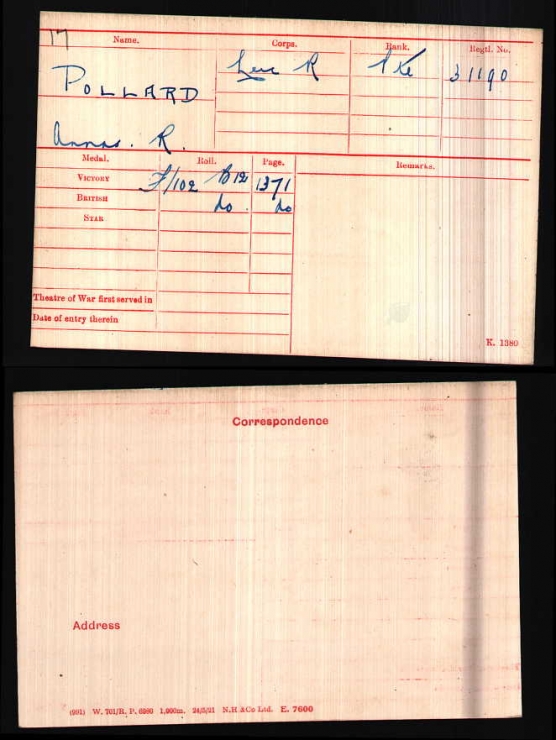 17
Name. Corps. Rank. Regtl. No.
POLLARD Leic R Pte 31190
R.
Medal. Roll. Page. Remarks.
VICTORY F/102 B12 1371
BRITISH do . do
STAR
Theatre of War first served in
Date of entry therein
K. 1380
Correspondence
Address
(901) W. 701/R. P. 6960 1,000m. 24/5/21 N.H &Co Ltd. E. 7600